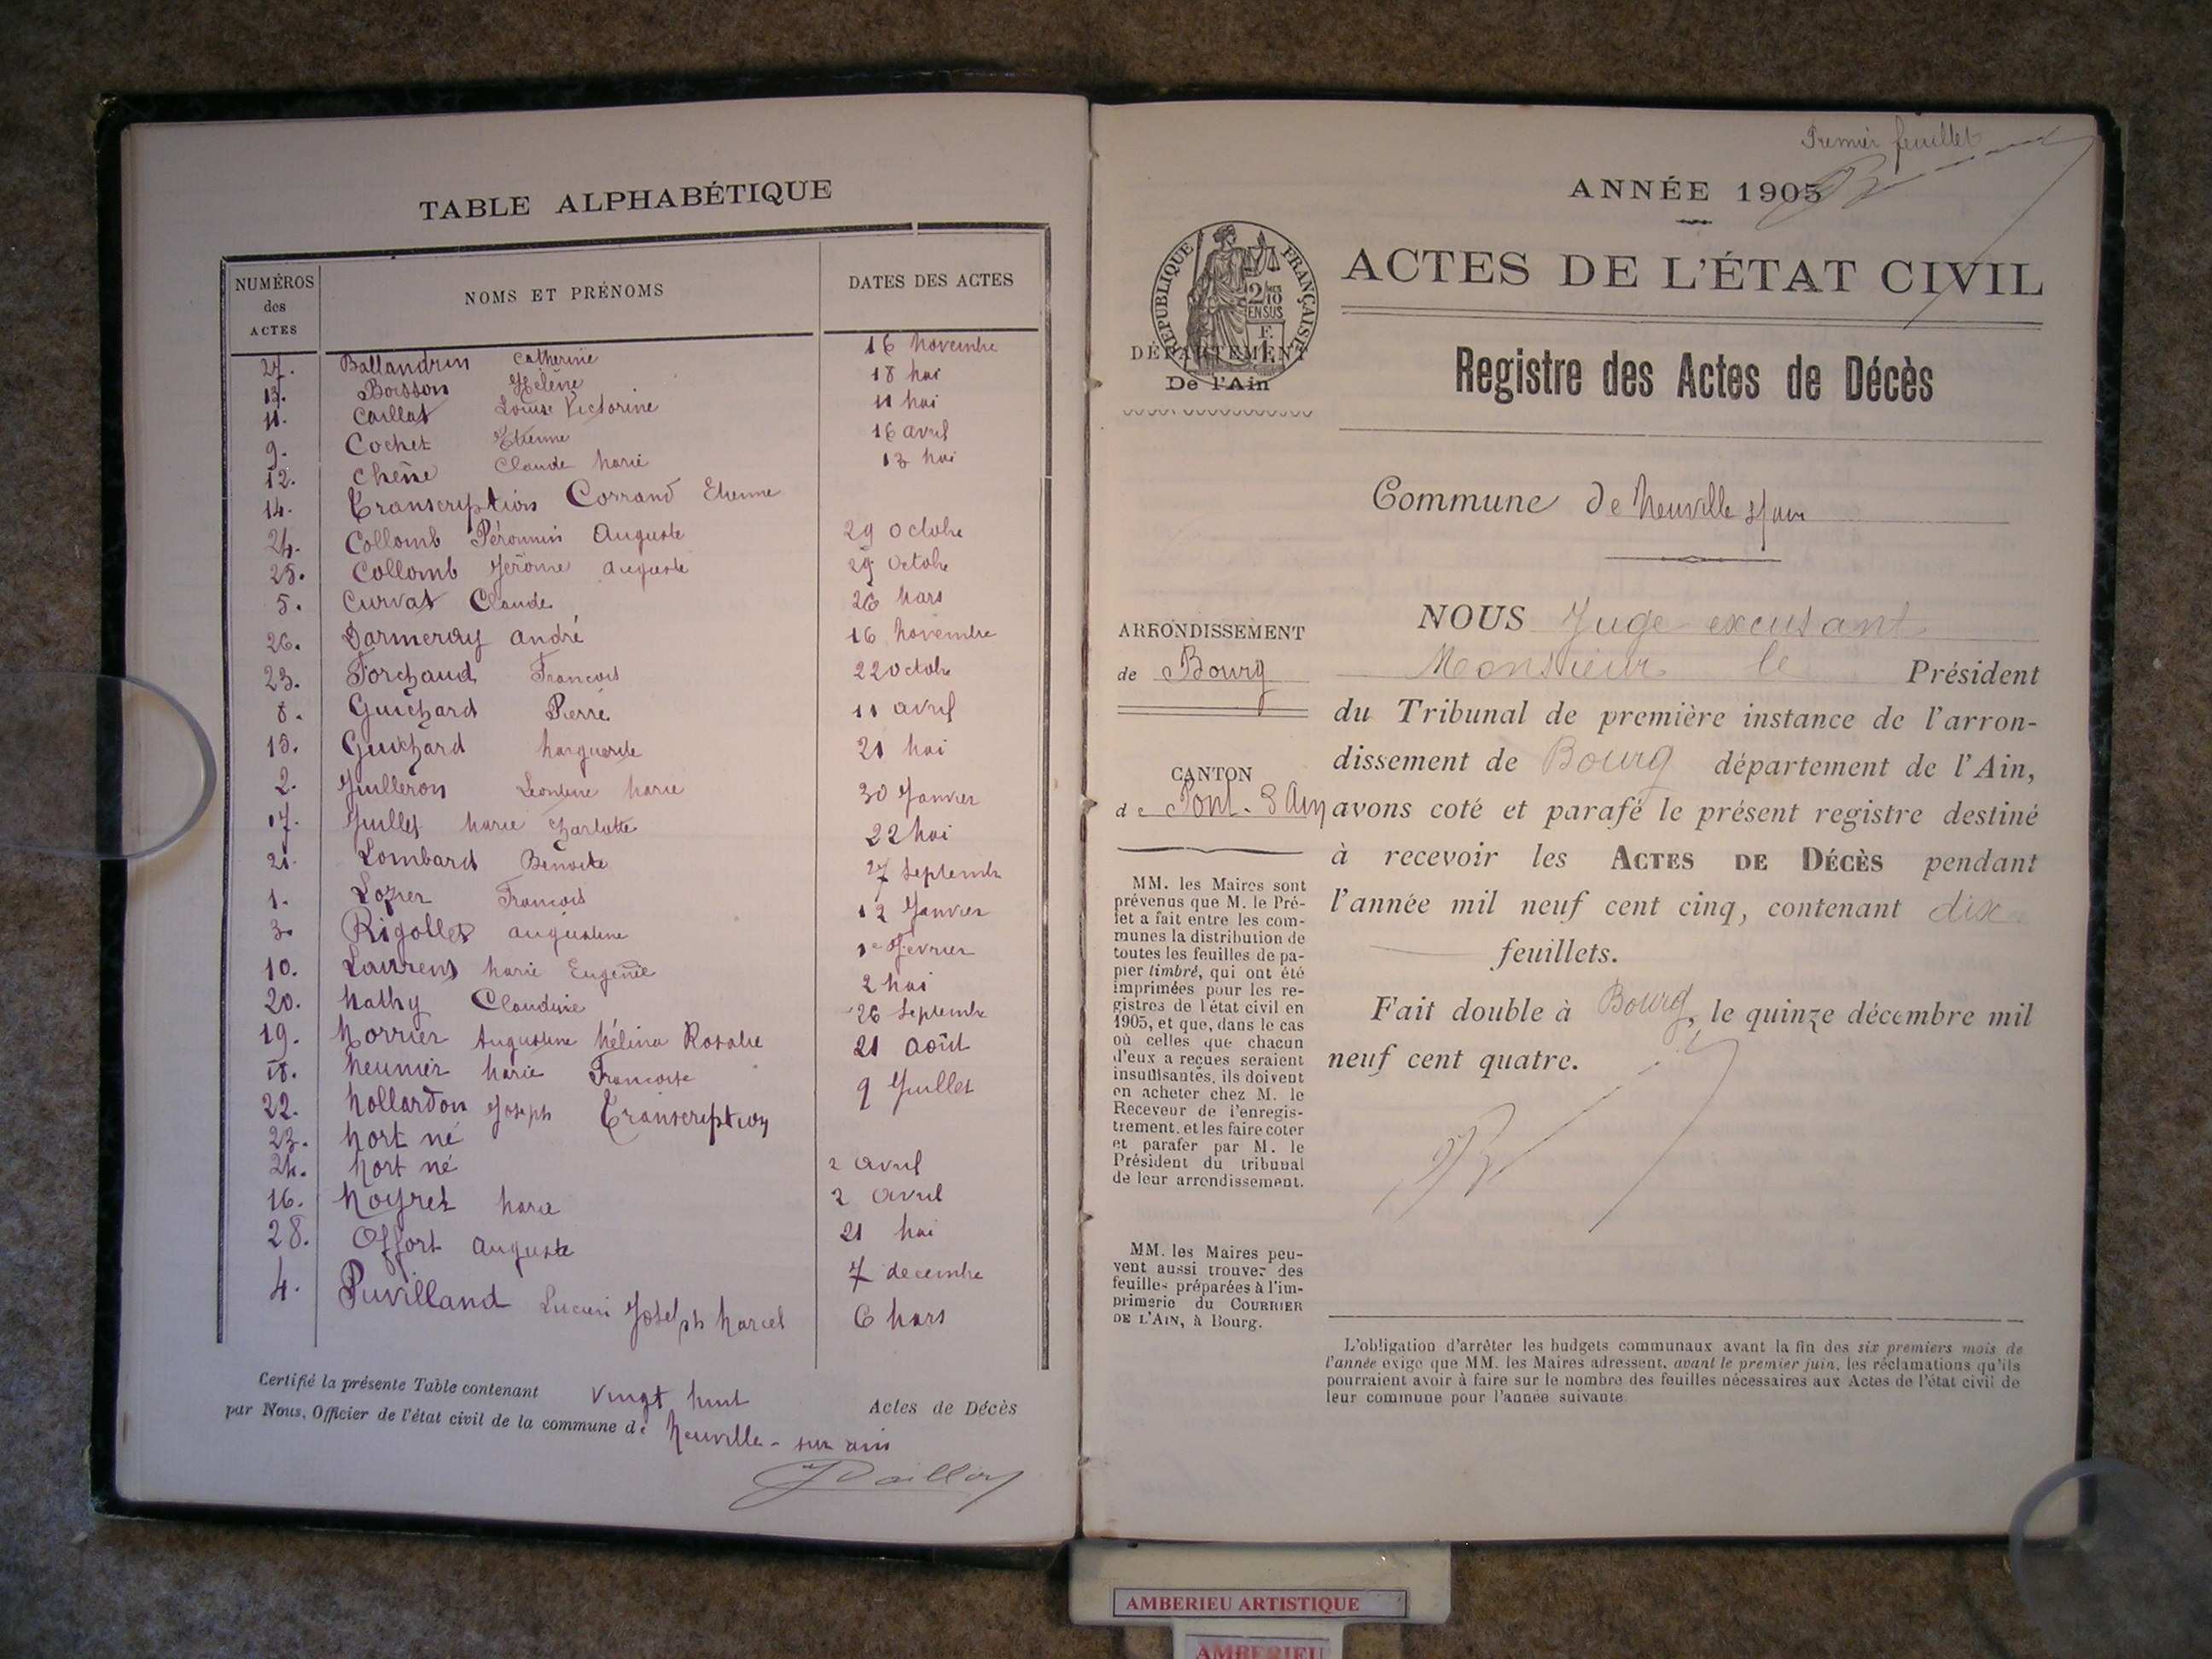 TABLE ALPHABÉTIQUE
NUMÉROS des ACTES NOMS ET PRÉNOMS DATES DES ACTES
27. Ballandrin Catherine 16 novembre
13. Boisson Hélène 18 mai
11. Caillat Louise Victorine 11 mai
9. Cochet Etienne 16 avril
12. Chêne Claude Marie 13 mai
14. Transcription Corrand Etienne
24. Collomb Auguste 29 octobre
25. Collomb Jérôme Auguste 29 octobre
5. Curvat Claude 26 mars
26. Darmeray André 16 novembre
23. Forchaud Francois 22 octobre
8. Guichard Pierre 11 avril
15. Guichard Marguerite 21 mai
2. Juilleron Léontine Marie 30 Janvier
17. Juillet Marie Charlotte 22 mai
21. Lombard Benoite 27 septembre
1. Lozier Francois 12 Janvier
3. Rigollet Augustine 1er Février
10. Laurens Marie Eugenie 2 mai
20. Mathy Claudine 26 septembre
19. Morrier Augustine Mélina Rosalie 21 août
18. Meunier Marie Francoise 9 Juillet
22. Mollardon Joseph Transcription
23. Mort né 2 avril
24. Mort né 2 avril
16. Moyret Marie 21 mai
28. Offort Auguste 7 decembre
4. Puvilland Lucien Joseph Marcel 6 Mars
Certifié la présente Table contenant vingt huit Actes de Décès
par Nous, Officier de l'état civil de la commune de Neuville-sur ain
Premier feuillet
ANNÉE 1905
ACTES DE L'ÉTAT CIVIL
RÉPUBLIQUE FRANÇAISE
2/10 EN SUS
DÉPARTEMENT
De l'Ain
Registre des Actes de Décès
Commune de Neuville s/ ain
ARRONDISSEMENT
de Bourg
CANTON
de Pont-d'Ain
MM. les Maires sont
prévenus que M. le Pré-
fet a fait entre les com-
munes la distribution de
toutes les feuilles de pa-
pier timbré, qui ont été
imprimées pour les re-
gistres de l'état civil en
1905, et que, dans le cas
où celles que chacun
d'eux a reçues seraient
insuffisantes, ils doivent
en acheter chez M. le
Receveur de l'enregis-
trement, et les faire coter
et parafer par M. le
Président du tribunal
de leur arrondissement.
MM. les Maires peu-
vent aussi trouver des
feuilles préparées à l'im-
primerie du COURRIER
DE L'AIN, à Bourg.
NOUS Juge excusant
Monsieur le Président
du Tribunal de première instance de l'arron-
dissement de Bourg département de l'Ain,
avons coté et parafé le présent registre destiné
à recevoir les ACTES DE DÉCÈS pendant
l'année mil neuf cent cinq, contenant dix
feuillets.
Fait double à Bourg, le quinze décembre mil
neuf cent quatre.
L'obligation d'arrêter les budgets communaux avant la fin des six premiers mois de
l'année exige que MM. les Maires adressent, avant le premier juin, les réclamations qu'ils
pourraient avoir à faire sur le nombre des feuilles nécessaires aux Actes de l'état civil de
leur commune pour l'année suivante.
AMBERIEU ARTISTIQUE
AMBERIEU